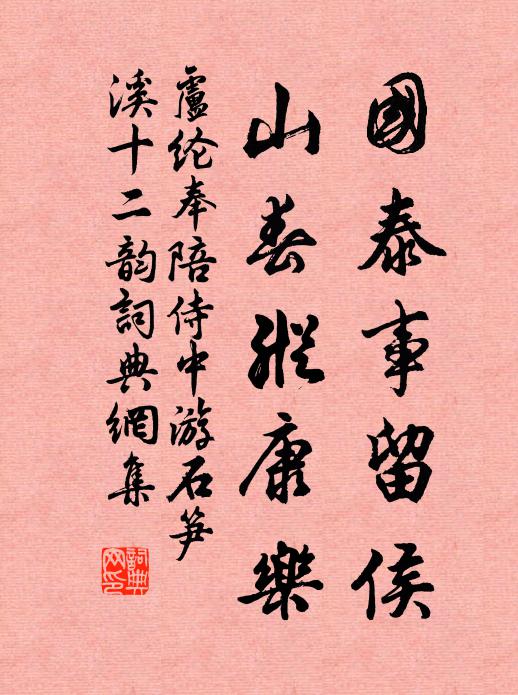 國泰事留侯
山春縱康樂
盧纶奉陪侍中游石笋
溪十二韵詞典網集
詞典网印